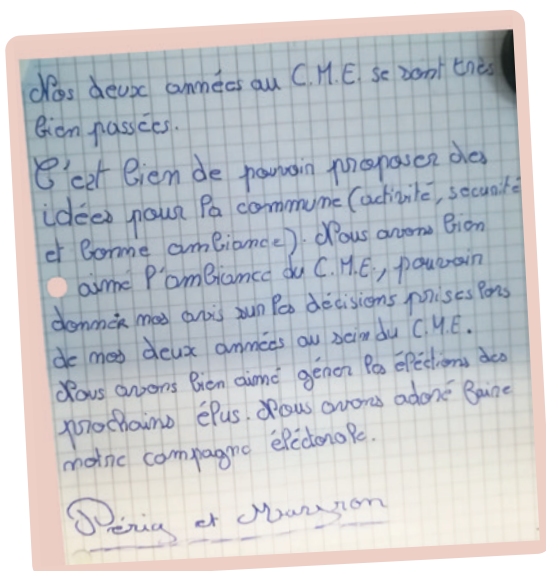 Nos deux années au C.M.E. se sont très
bien passées.
C'est bien de pouvoir proposer des
idées pour la commune (activité, securité
et bonne ambiance). Nous avons bien
aimé l'ambiance du C.M.E., pouvoir
donner nos avis sur les décisions prises lors
de nos deux années au sein du C.M.E.
Nous avons bien aimé gérer les éléctions des
prochains élus. Nous avons adoré faire
notre campagne éléctorale.
et